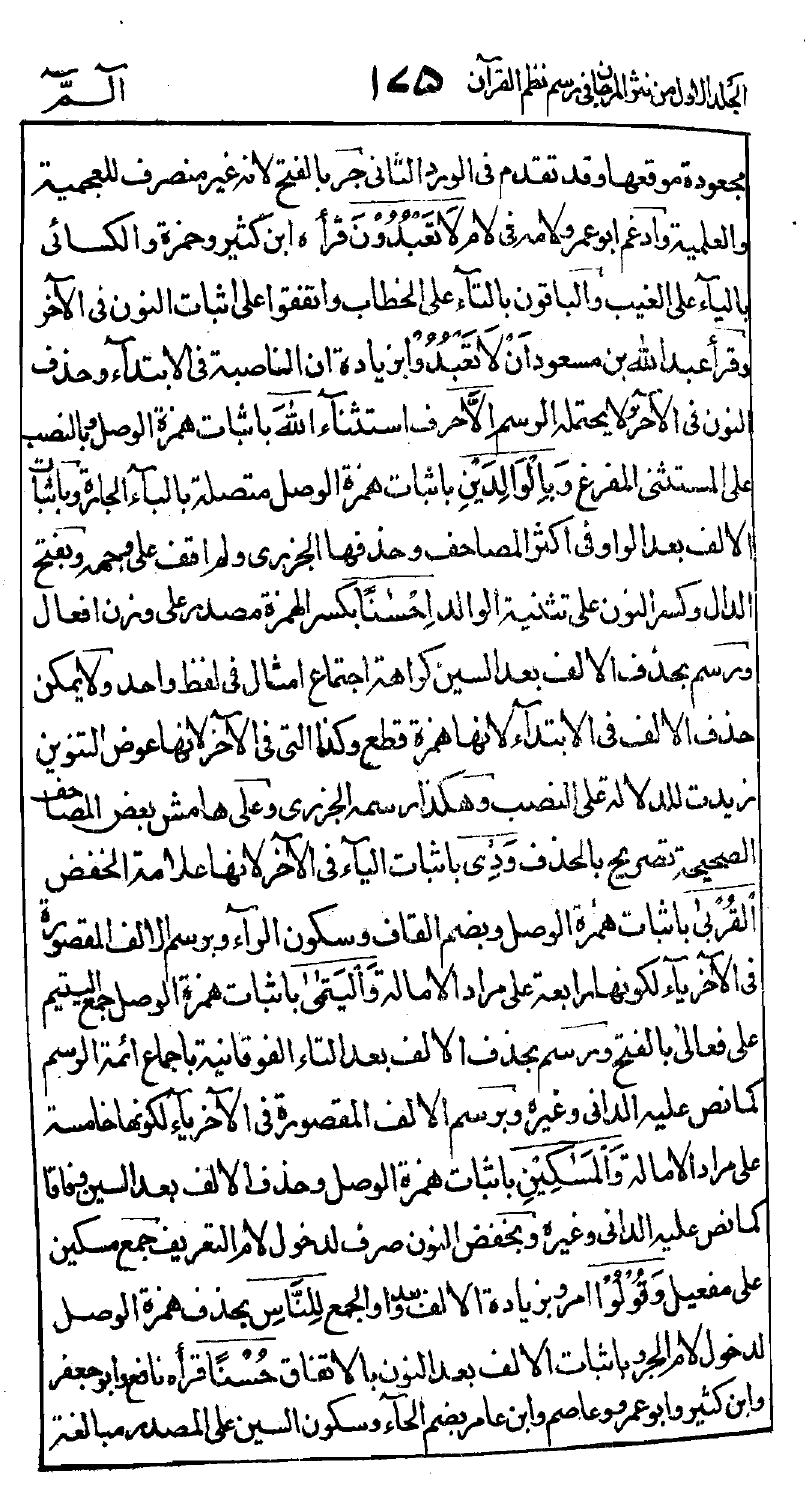 الجلد الاول من نثر المرجان فى رسم نظم القرآن ١٧٥ الٓـمّٓ
مجعودة موقعها وقد تقدم فى الورد الثانى جر بالفتح لانه غير منصرف للعجمية
والعلمية وادغم ابو عمرو لامه فى لام لَا تَعْبُدُوْنَ قرأه ابن كثير وحمزة والكسائى
باليآء على الغيب والباقون بالتآء على الخطاب واتفقوا على اثبات النون فى الآخر
وقرأ عبد الله بن مسعود اَنْ لَا تَعْبُدُوْا بزيادة ان الناصبة فى الابتدآء وحذف
النون فى الآخر ولا يحتمله الرسم اِلَّا حرف استثنآء اللهَ باثبات همزة الوصل وبالنصب
على المستثنى المفرغ وَبِالْوَالِدَيْنِ باثبات همزة الوصل متصلة بالبآء الجارة وباثبات
الالف بعد الواو فى اكثر المصاحف وحذفها الجزرى ولم اقف على وجهه وبفتح
الدال وكسر النون على تثنية الوالد اِحْسٰنًا بكسر الهمزة مصدر على وزن افعال
ورسم بحذف الالف بعد السين كراهة اجتماع امثال فى لفظ واحد ولا يمكن
حذف الالف فى الابتدآء لانها همزة قطع وكذا التى فى الآخر لانها عوض التنوين
زيدت للدلالة على النصب وهكذا رسمه الجزرى وعلى هامش بعض المصاحف
الصحيحة تصريح بالحذف وَذِى باثبات اليآء فى الآخر لانها علامة الخفض
الْقُرْبٰى باثبات همزة الوصل وبضم القاف وسكون الرآء وبرسم الالف المقصورة
فى الآخر يآء لكونها رابعة على مراد الامالة وَالْيَتٰمٰى باثبات همزة الوصل جمع اليتيم
على فعالى بالفتح ورسم بحذف الالف بعد التاء الفوقانية باجماع ائمة الرسم
كما نص عليه الدانى وغيره وبرسم الالف المقصورة فى الآخر يآء لكونها خامسة
على مراد الامالة وَالْمَسٰكِيْنِ باثبات همزة الوصل وحذف الالف بعد السين وفاقا
كما نص عليه الدانى وغيره وبخفض النون صرف لدخول لام التعريف جمع مسكين
على مفعيل وَقُوْلُوْا امر وبزيادة الالف بعد واو الجمع لِلنَّاسِ بحذف همزة الوصل
لدخول لام الجر وباثبات الالف بعد النون بالاتفاق حُسْنًا قرأه نافع وابو جعفر
وابن كثير وابو عمرو وعاصم وابن عامر بضم الحآء وسكون السين على المصدر مبالغة